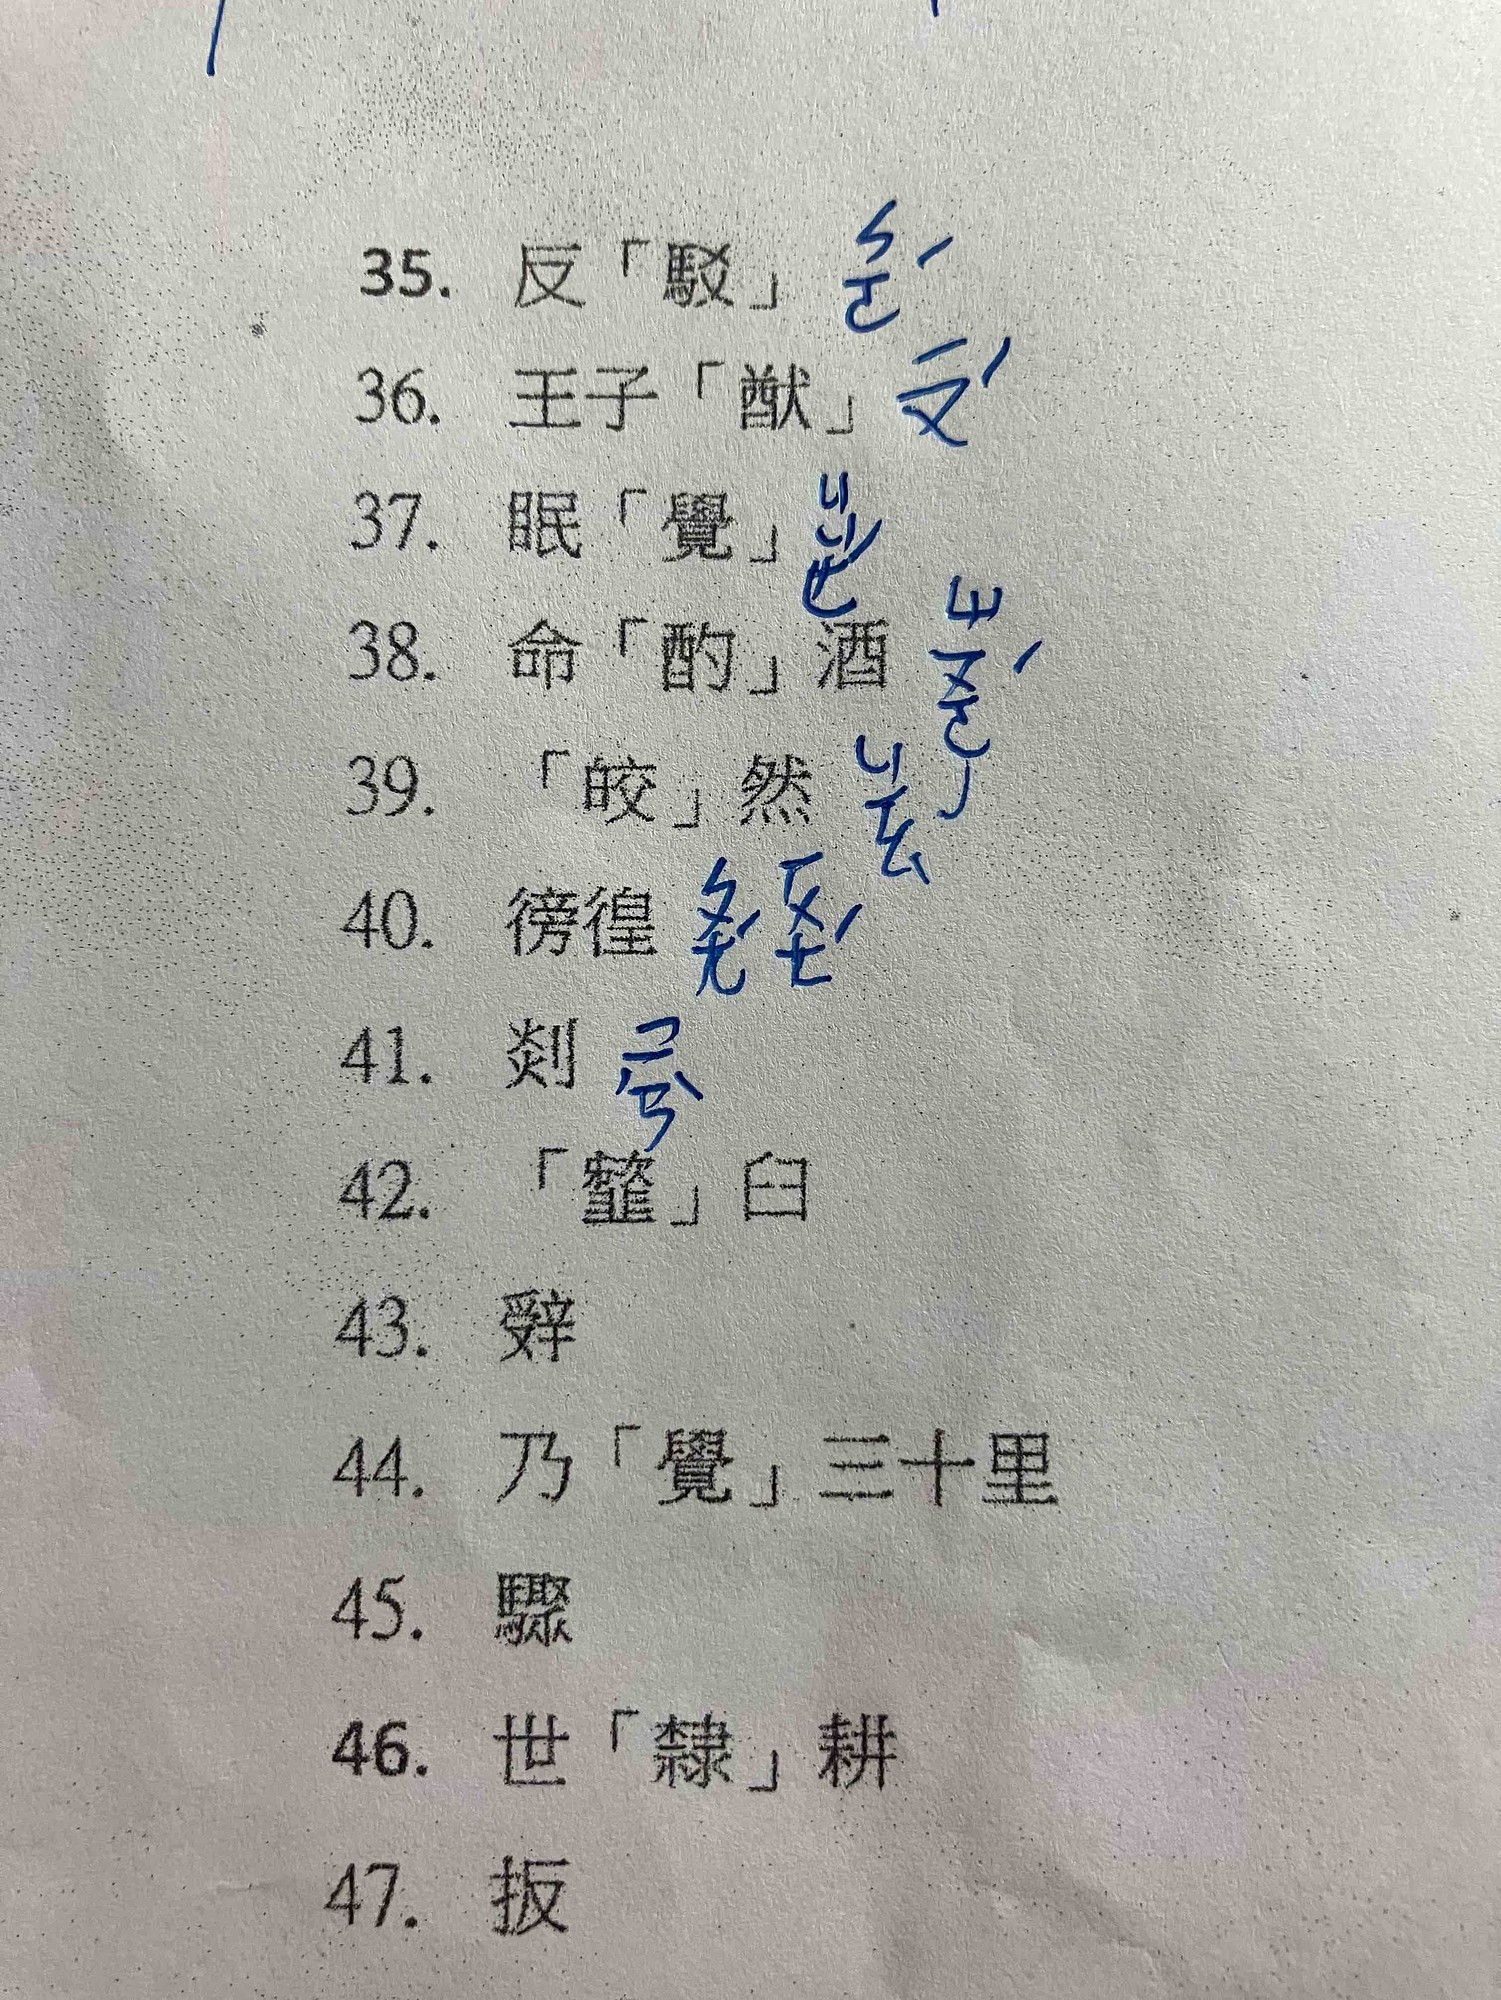 35. 反「駁」 ㄅㄛˊ
36. 王子「猷」 ㄧㄡˊ
37. 眠「覺」 ㄐㄩㄝˊ
38. 命「酌」酒 ㄓㄨㄛˊ
39. 「皎」然 ㄐㄧㄠˊ
40. 徬徨 ㄆㄤˊ ㄏㄨㄤˊ
41. 剡 ㄕㄢˋ
42. 「韲」臼
43. 辤
44. 乃「覺」三十里
45. 驟
46. 世「隸」耕
47. 扳